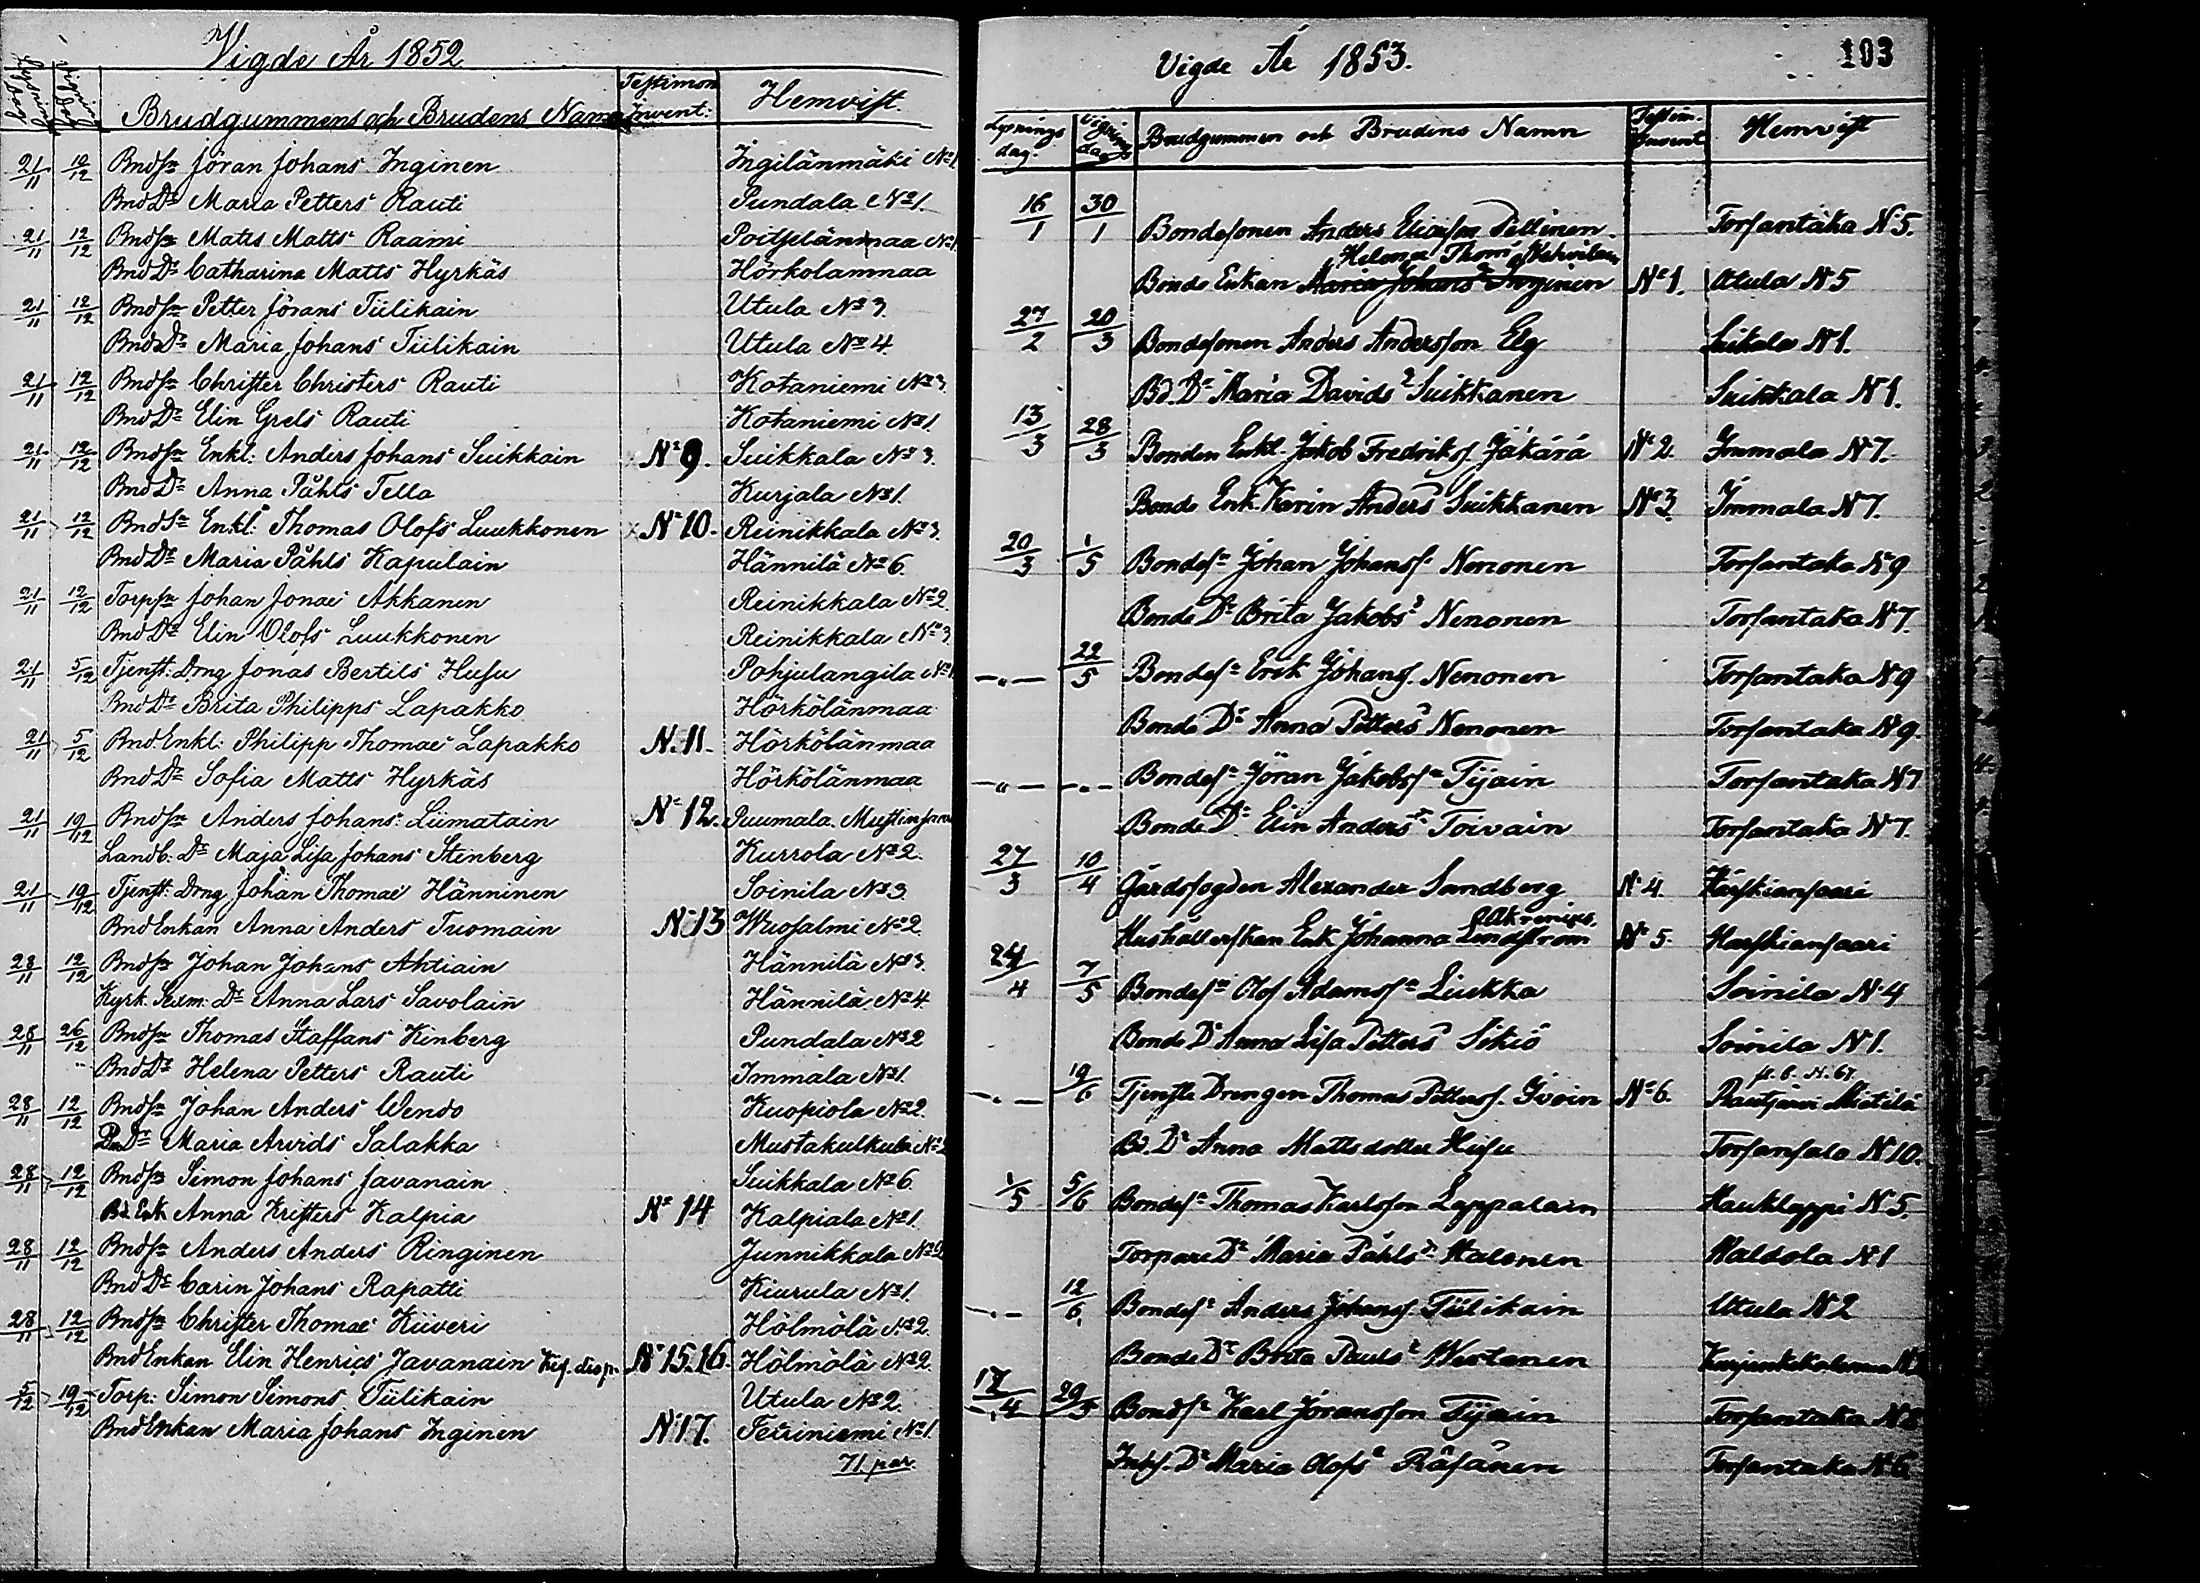 Vigde År 1852
Lysnings dag Vignings dag Brudgummens och Brudens Namn Testimon Invent: Hemvist.
21/11 12/12 Bndsn Jöran Johans Inginen Ingilänmäki No 1
Bnd Dr Maria Petters Rauti Pundala No 1.
21/11 12/12 Bndsn Matts Matts Raami No 1
Bnd Dr Catharina Matts Hyrkäs Hörkolanmaa
21/11 12/12 Bndsn Petter Jörans Tiilikain Utula No 3.
Bnd Dr Maria Johans Tiilikain Utula No 4.
21/11 12/12 Bndsn Christer Christers Rauti Kotaniemi No 3.
Bnd Dr Elin Grels Rauti Kotaniemi No 1.
21/11 12/12 Bndsn Enkl: Anders Johans Suikkain No 9. Suikkala No 3.
Bnd Dr Anna Påhls Tella Kurjala No 1.
21/11 12/12 Bndsn Enkl: Thomas Olofs Luukkonen No 10. Reinikkala No 3.
Bnd Dr Maria Påhls Kapulain Hännilä No 6.
21/11 12/12 Torpsn Johan Jonae Akkanen Reinikkala No 2.
Bnd Dr Elin Olofs Luukkonen Reinikkala No 3.
21/11 5/12 Tjenst: Drng Jonas Bertils Husu Pohjulangila No 1
Bnd Dr Brita Philipps Lapakko Hörkölänmaa
21/11 5/12 Bnd. Enkl: Philipp Thomae Lapakko N. 11. Hörkölänmaa
Bnd Dr Sofia Matts Hyrkäs Hörkölänmaa
21/11 19/12 Bndsn Anders Johans: Liimatain No 12. Puumala.
Landb: Dr Maja Lisa Johans Stenberg Kurrola No 2.
21/11 19/12 Tjenst: Drng Johan Thomae Hänninen Soinila No 3.
Bnd Enkan Anna Anders Tuomain No 13 Wuosalmi No 2.
28/11 12/12 Bndsn Johan Johans Ahtiain Hännilä No 3.
Kyrk. Dr Anna Lars Savolain Hännilä No 4.
28/11 26/12 Bndsn Thomas Staffans Kinberg Pundala No 2
Bnd Dr Helena Petters Rauti Immala No 1.
28/11 12/12 Bndsn Johan Anders Wendo Kuopiola No 2.
Bnd Dr Maria Arvids Salakka Mustakulkula No
28/11 12/12 Bndsn Simon Johans Javanain Suikkala No 6.
Bd Enk Anna Kristers Kalpia No 14 Kalpiala No 1.
28/11 12/12 Bndsn Anders Anders Ringinen Junnikkala No 2
Bnd Dr Carin Johans Rapatti Kiurula No 1.
28/11 12/12 Bndsn Christer Thomae Kiiveri Hölmölä No 2.
Bnd Enkan Elin Henrics Javanain No 15.16. Hölmölä No 2.
5/12 19/12 Torp: Simon Simons Tiilikain Utula No 2.
Bnd Enkan Maria Johans Inginen No 17. No 1.
71 par.
Vigde År 1853.
103
Lysnings dag. Vignings dag Brudgummen och Brudens Namn Testim. Invent Hemvist
16/1 30/1 Bondesonen Anders Eliasson Pellinen Torsantaka N 5.
Helena Thoms
Bonde Enkan Maria Johans Inginen No 1. Utula N 5
27/2 20/3 Bondesonen Anders Andersson Elg Suikala N 1.
Bd. Dr Maria Davids Suikkanen Suikkala N 1.
13/3 28/3 Bonden Enkl. Jakob Fredriks. Jäkärä No 2. Immala N 7.
Bonde Enk. Karin Anders Suikkanen No 3. Immala N 7.
20/3 1/5 Bondesn Johan Johans. Nenonen Torsantaka N 9
Bonde Dr Brita Jakobs Nenonen Torsantaka N 7.
—„— 22/5 Bondesn Erik Johans. Nenonen Torsantaka N 9
Bonde Dr Anna Petters Nenonen Torsantaka N 9.
—„— —„— Bondesn Jöran Jakobsn Tijain Torsantaka N 7
Bonde Dr Elin Anders Toivain Torsantaka N 7.
27/3 10/4 Gårdsfogden Alexander Sandberg N 4. Harskiansaari
Hushållerskan Enk Johanna Lindstrom No 5. Harskiansaari
24/4 7/5 Bondesn Olof Adamsn Liukka Soinila N 4
Bonde Dr Anna Lisa Petters Sikiö Soinila N 1.
—„— 19/6 Tjenste Drengen Thomas Petters. Ivoin No 6. Rautjärvi Miettilä
Bd. Dr Anna Mattsdotter Husu Torsansalo N 10.
1/5 5/6 Bondesn Thomas Karlsson Lappalain Haukkappi N 5.
Torpare Dr Maria Påhls Halonen Haldola N 1
—„— 12/6 Bondesn Anders Johans. Tiilikain Utula N 2
Bonde Dr Brita Pauls Wertanen
17/4 29/5 Bondsn Karl Jöransson Tijain Torsantaka N 8
Inhs. Dr Maria Olofs Räsänen Torsantaka N 6